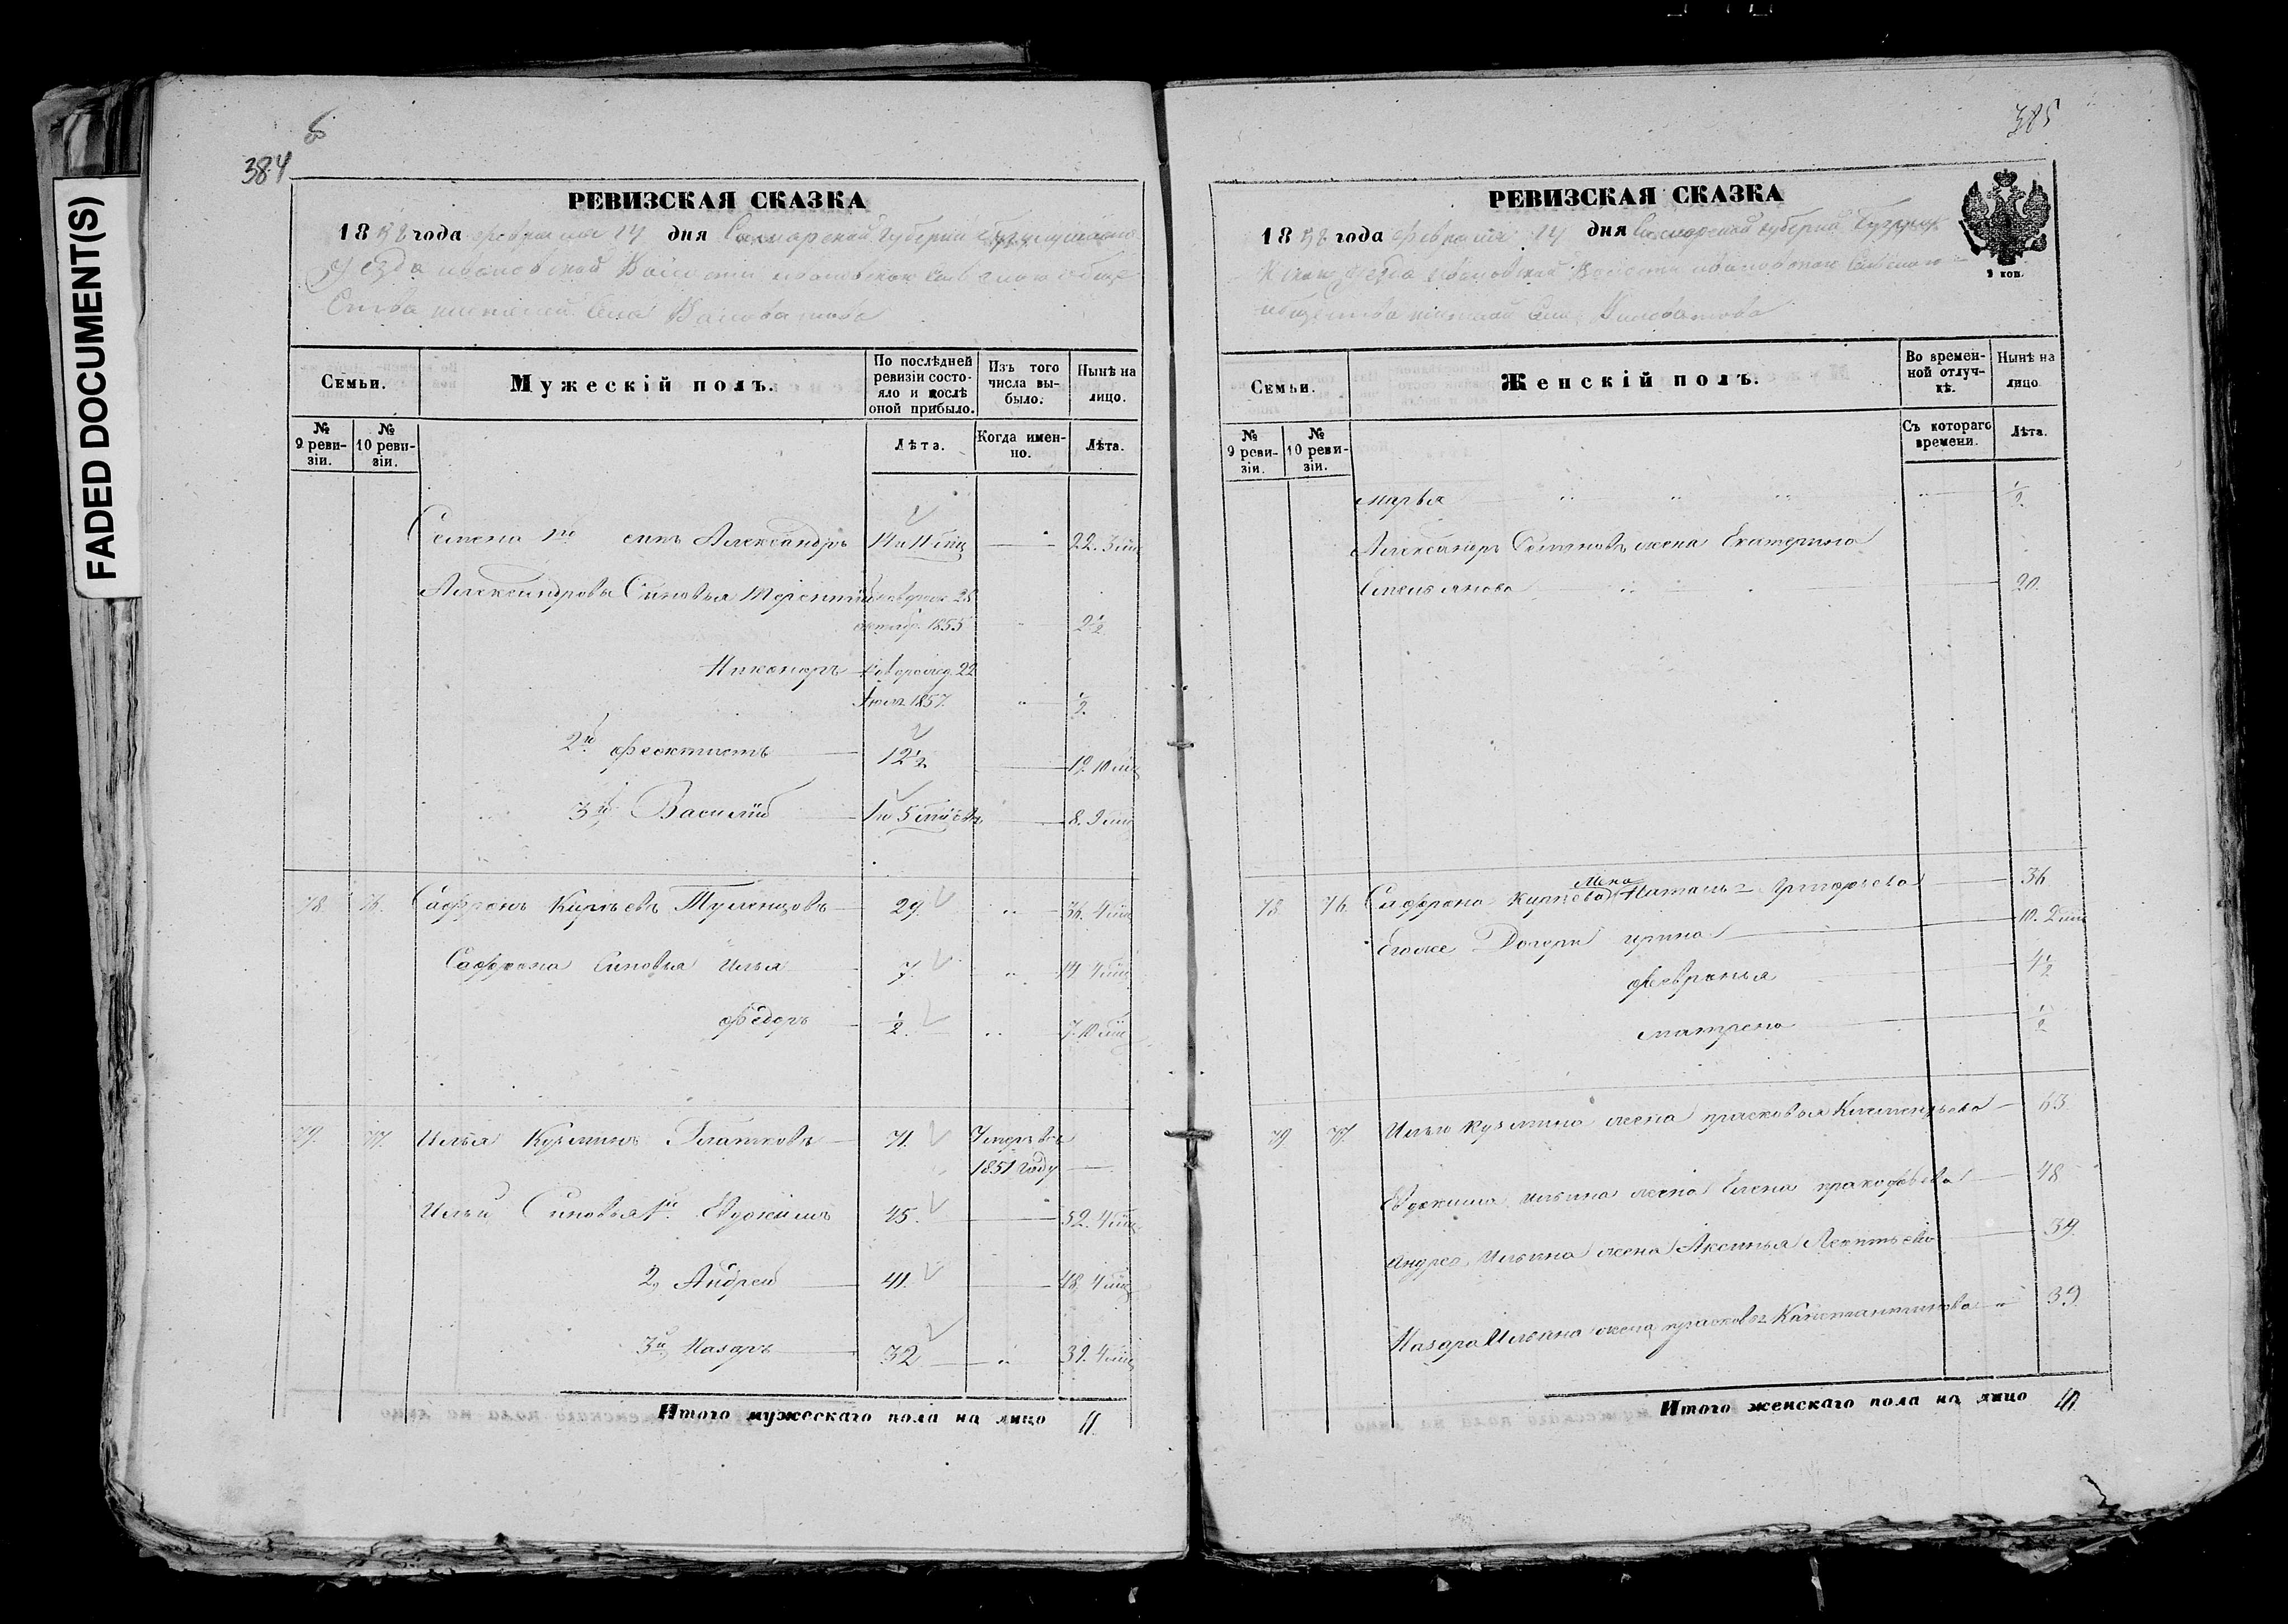 FADED DOCUMENT(S)
6
384
РЕВИЗСКАЯ СКАЗКА
1858 года февраля 14 дня Самарской Губернии Бугурусланскаго
Уезда ивановской Волости ивановскаго Сельскаго обще
Ства жителей Села
Семьи.
Мужескій полъ.
По послѣдней ревизіи состояло и послѣ оной прибыло.
Изъ того числа выбыло.
Нынѣ на лицо.
№ 9 ревизіи.
№ 10 ревизіи.
Лѣта.
Когда именно.
Лѣта.
Семена 1го сынъ Александръ 14 и 11 22. 3
Александровы Синовья Терентий новорож 28
октяб. 1855 2 1/2
Никаноръ новорожд. 22
Июля 1857. " 1/2
2й Феоктистъ 12 1/2 19. 10
3й Василий 1 и 5 8. 9
78. 76. Сафронъ Карпъевъ 29. " 36. 4
Сафрона Синовья Илья 7. " 14 4
Федоръ 1/2 " 7. 10
79. 77. Илья Кузминъ Платковъ 71. Умеръ въ
1851 году
Ильи Синовья 1й Евдокимъ 45. 52. 4
2й Андрей 41. 48. 4
3й Назаръ 32 " 39. 4
Итого мужескаго пола на лицо 11.
385
РЕВИЗСКАЯ СКАЗКА
1858 года февраля 14 дня Самарской губернии
Уезда ивановской Волости ивановскаго Сельскаго
общества жителей Села
2 коп.
Семьи.
Женскій полъ.
Во временной отлучкѣ.
Нынѣ на лицо
№ 9 ревизіи.
№ 10 ревизіи.
Съ котораго времени.
Лѣта.
марья " " " " 1/2
Александра Семенова жена Екатерина
Емельянова 20.
78 76. Сафрона Карпъева жена Наталья Григорьева 36
Егоже Дочери ирина 10. 2
февронья 4 1/2
матрена 1/2
79 77. Ильи Кузмина жена прасковья Климентьева 63
Евдокима Ильина жена Елена пракофьева 48
андрея Ильина жена Аксинья Леонтьева 39.
Назара Ильина жена прасковья Канстантинова " 39
Итого женскаго пола на лицо